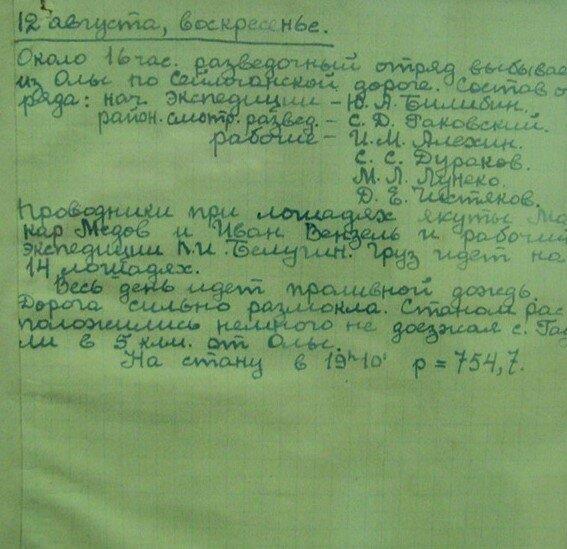 12 августа, воскресенье.
Около 16 час. разведочный отряд выбывае
из Олы по Сеймчанской дороге. Состав о
ряда: нач. экспедиции – Ю. А. Билибин.
район. смотр. развед. – С. Д. Раковский.
рабочие – И. М. Алехин.
С. С. Дураков.
М. Л. Лунеко.
Д. Е. Чистяков.
Проводники при лошадях якуты Ма
кар Медов и Иван Вензель и рабочий
экспедиции П. И. Белугин. Груз идет на
14 лошадях.
Весь день идет проливной дождь.
Дорога сильно размокла. Станом рас
положились немного не доезжая с. Гад
ли в 5 клм. от Олы.
На стану в 19ч 10' p = 754,7.